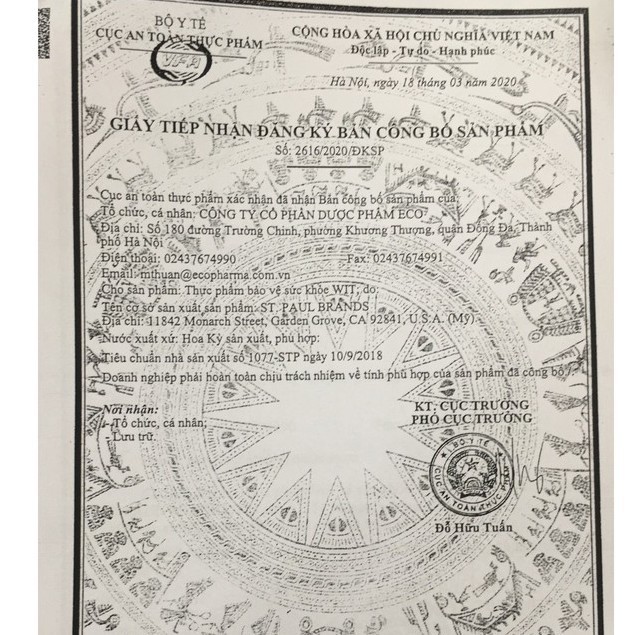 BỘ Y TẾ
CỤC AN TOÀN THỰC PHẨM
VFA
CỘNG HÒA XÃ HỘI CHỦ NGHĨA VIỆT NAM
Độc lập - Tự do - Hạnh phúc
Hà Nội, ngày 18 tháng 03 năm 2020
GIẤY TIẾP NHẬN ĐĂNG KÝ BẢN CÔNG BỐ SẢN PHẨM
Số: 2616/2020/ĐKSP
Cục an toàn thực phẩm xác nhận đã nhận Bản công bố sản phẩm của:
Tổ chức, cá nhân: CÔNG TY CỔ PHẦN DƯỢC PHẨM ECO
Địa chỉ: Số 180 đường Trường Chinh, phường Khương Thượng, quận Đống Đa, Thành
phố Hà Nội
Điện thoại: 02437674990 Fax: 02437674991
Email: mthuan@ecopharma.com.vn
Cho sản phẩm: Thực phẩm bảo vệ sức khỏe WIT; do:
Tên cơ sở sản xuất sản phẩm: ST. PAUL BRANDS
Địa chỉ: 11842 Monarch Street, Garden Grove, CA 92841, U.S.A. (Mỹ)
Nước xuất xứ: Hoa Kỳ sản xuất, phù hợp:
Tiêu chuẩn nhà sản xuất số 1077-STP ngày 10/9/2018
Doanh nghiệp phải hoàn toàn chịu trách nhiệm về tính phù hợp của sản phẩm đã công bố./.
Nơi nhận:
- Tổ chức, cá nhân;
- Lưu trữ.
KT. CỤC TRƯỞNG
PHÓ CỤC TRƯỞNG
BỘ Y TẾ
CỤC AN TOÀN THỰC PHẨM
Đỗ Hữu Tuấn